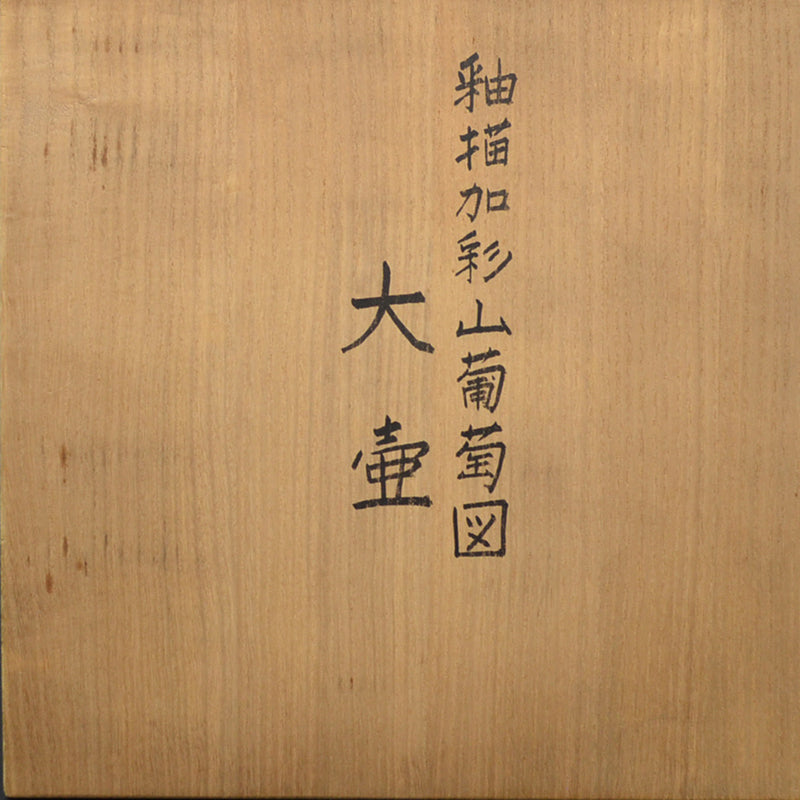 釉描加彩山葡萄図
大壷